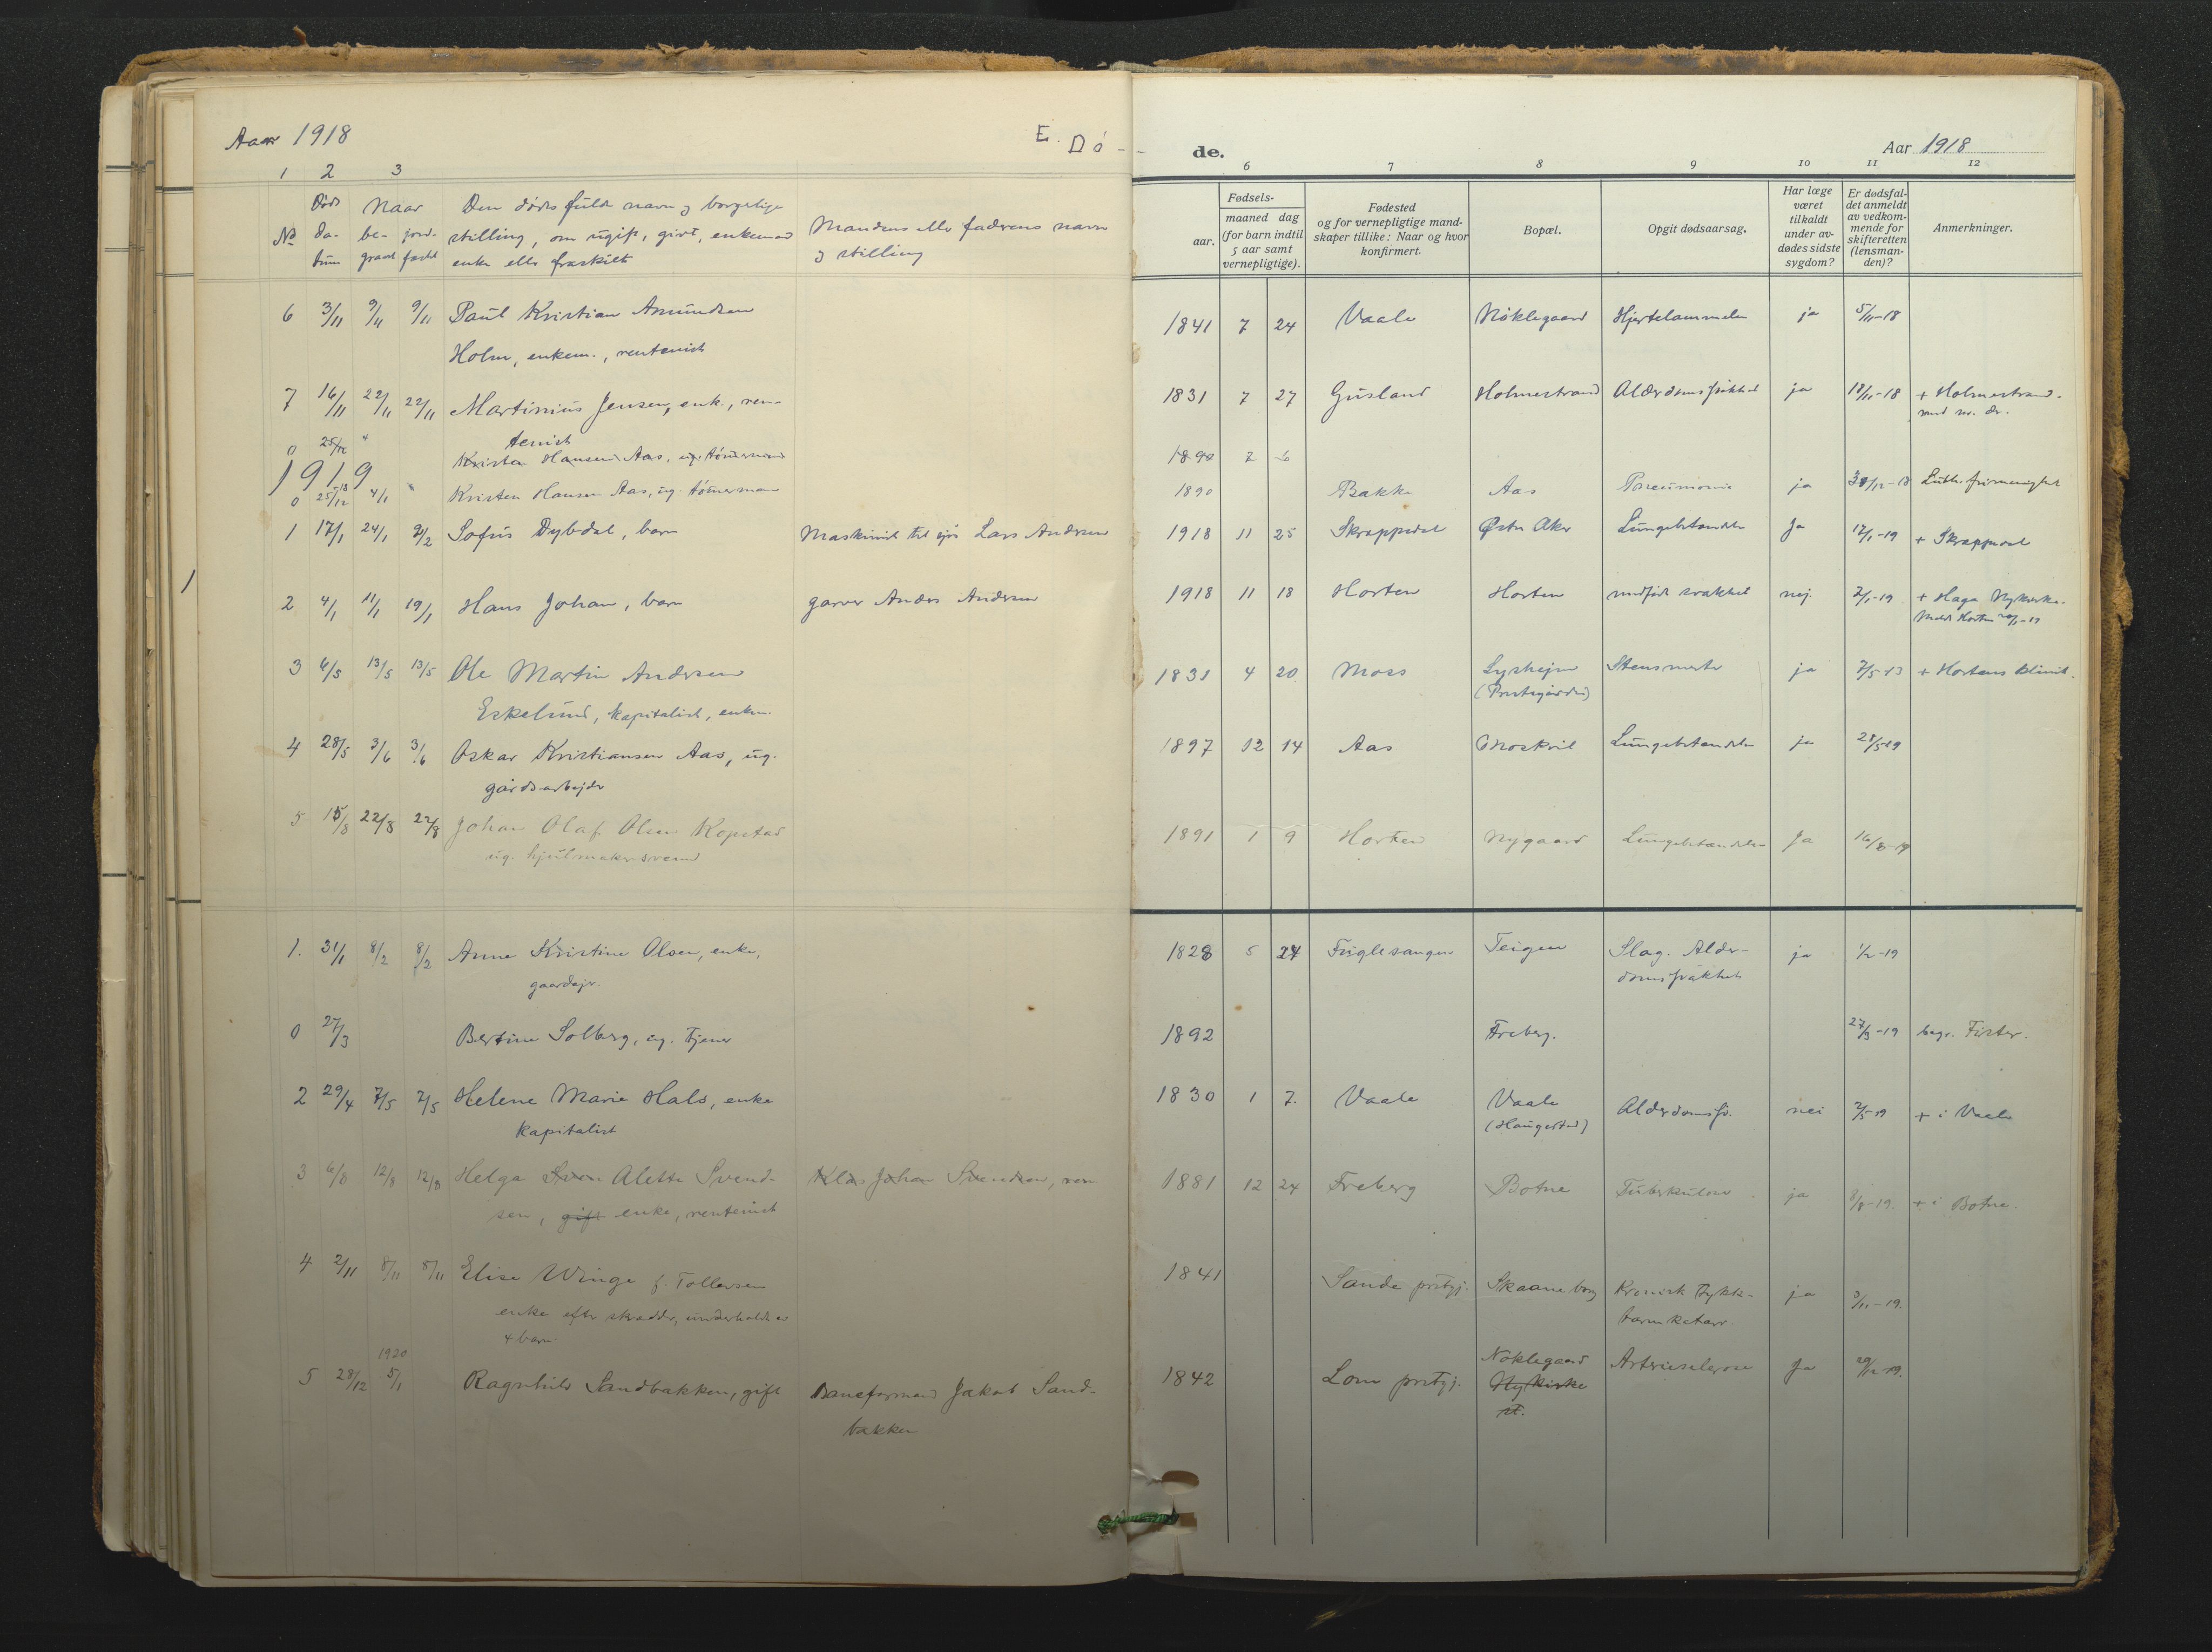 Aar 1918
E. Dø-
de.
Aar 1918
1 2 3
6 7 8 9 10 11 12
No Døds datum Naar begravet jordfæstet Den dødes fulde navn og borgerlige stilling, om ugift, givt, enkemand enke eller fraskilt Mandens eller faderens navn og stilling
Fødsels-
aar. maaned dag (for barn indtil 5 aar samt vernepligtige).
Fødested og for vernepligtige mandskaper tillike: Naar og hvor konfirmert.
Bopæl.
Opgit dødsaarsag.
Har læge været tilkaldt under avdødes sidste sygdom?
Er dødsfaldet anmeldt av vedkommende for skifteretten (lensmanden)?
Anmerkninger.
6 3/11 9/11 9/11 Paul Kristian Amundsen 1841 7 24 Vaale Nøklegaard Hjertelammelse ja 5/11-18
Holm, enkem., rentenist
7 16/11 22/11 22/11 Martinius Jensen, enk., ren- 1831 7 27 Gusland Holmestrand Alderdomssvakhed ja 18/11-18 + Holmestrand.
tenist
0 25/12 4 Kristen Hansen Aas, ug. tømmermand 1890 2 6
1919
0 25/12 18 4/1 Kristen Hansen Aas, ug. tømmerman 1890 Bakke Aas Pneumonie ja 30/12-18 Luth. frimenighet
1 17/1 24/1 9/2 Sofus Dybdal, barn Maskinist til sjøs Lars Andersen 1918 11 25 Skrappedal Østre Aker Lungebetændelse Ja 17/1-19 + Skrappedal
2 4/1 11/1 19/1 Hans Johan, barn garver Anders Andersen 1918 11 18 Horten Horten medfødt svakhet nej 7/1-19 + Haga Nykirke.
Meldt Horten -19
3 6/5 13/5 13/5 Ole Martin Andersen 1831 4 20 Moss Lyshejm Stensmerte ja 7/5-13 + Hortens klinik.
(Prestegården)
Eskelund, kapitalist, enkem.
4 28/5 3/6 3/6 Oskar Kristiansen Aas, ug. 1897 12 14 Aas Moskvil Lungebetændelse ja 28/5-19
gårdsarbejder
5 15/8 22/8 22/8 Johan Olaf Olsen Kopstad 1891 1 9 Horten Nygaard Lungebetændelse Ja 16/8-19
ug. hjulmakersvend
1. 31/1 8/2 8/2 Anne Kristine Olsen, enke, 1828 5 24 Fuglesangen Teigen Slag. Alder- ja 1/2-19
gaardejer. domssvakhet
0 27/3 Bertine Solberg, ug. tjener 1892 Freberg. 27/3-19 begr. Fister.
2 29/4 7/5 7/5 Helene Marie Hals, enke 1830 1 7. Vaale Vaale Alderdomssv. nei 2/5-19 + i Vaale
kapitalist (Haugestad)
3 6/8 12/8 12/8 Helga Alette Svend- Klas Johan Svendsen, ren 1881 12 24 Freberg Botne Tuberkulose ja 8/8-19. + i Botne.
sen, gift enke, rentenist
4 2/11 8/11 8/11 Elise Winge f. Tollersen 1841 Sande prstgj. Skaane borg Kronisk tykk- ja 3/11-19.
enke efter skrædder, underholdt av tarmkatarr
4 barn.
1920
5 28/12 5/1 Ragnhild Sandbakken, gift Baneformand Jakob Sand- 1842 Lom prstgj. Nøklegaard Arteriesclerose Ja 29/12-19.
bakken Nykirke
st.
1